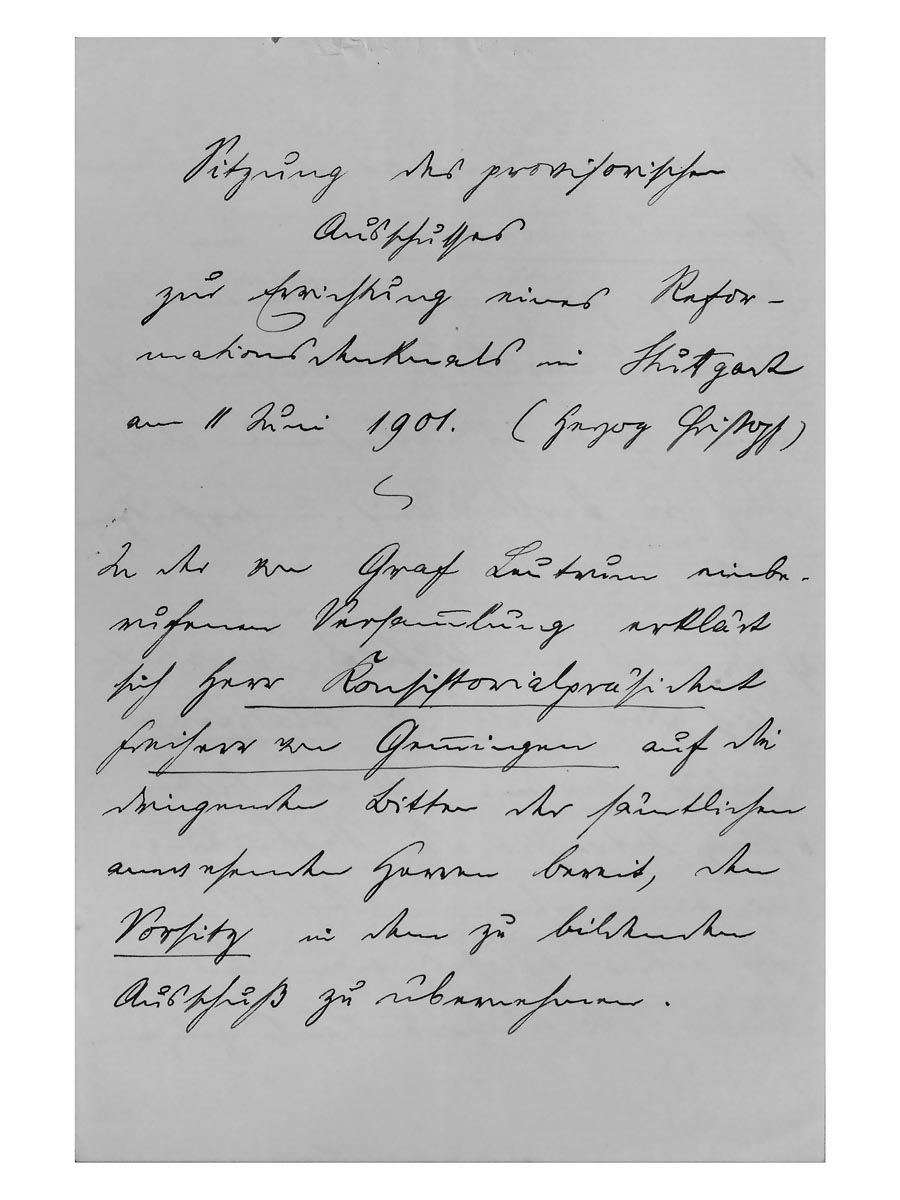 Sitzung des provisorischen
Ausschusses
zur Errichtung eines Refor-
mationsdenkmals in Stuttgart
am 11 Juni 1901. (Herzog Christoph)
In der von Graf Leutrum einbe-
rufenen Versammlung erklärt
sich Herr Konsistorialpräsident
Freiherr von Gemmingen auf die
dringenden Bitten der sämtlichen
anwesenden Herren bereit, den
Vorsitz in dem zu bildenden
Ausschuß zu übernehmen.